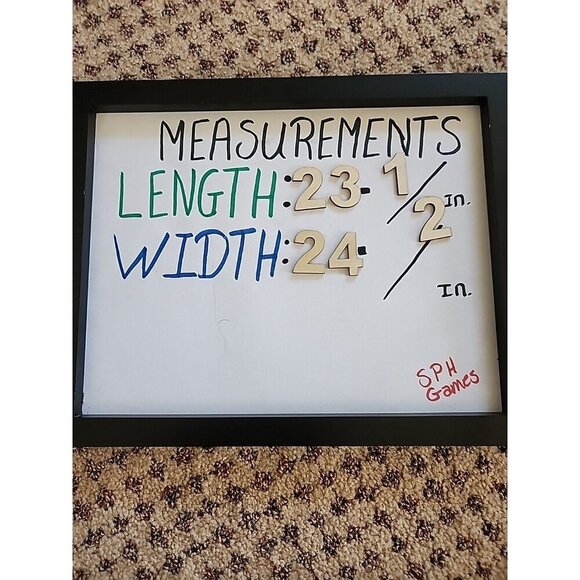 MEASUREMENTS
LENGTH: 23-1/2 In.
WIDTH: 24- / In.
SPH
Games